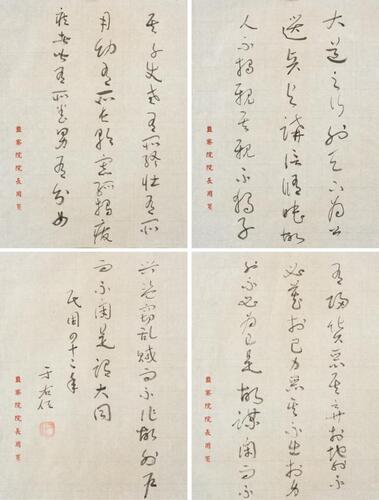 大道之行也天下為公
選賢與能講信修睦故
人不獨親其親不獨子
監察院院長用箋
其子使老有所終壯有所
用幼有所長鰥寡孤獨廢
疾者皆有所養男有分女
監察院院長用箋
有歸貨惡其棄於地也不
必藏於己力惡其不出於身
也不必為己是故謀閉而不
監察院院長用箋
興盜竊亂賊而不作故外戶
而不閉是謂大同
民國四十二年
于右任
監察院院長用箋